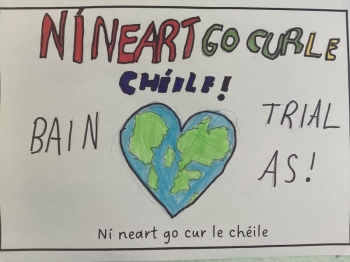 NÍ NEART GO CUR LE
CHÉILE!
BAIN
TRIAL
AS!
Ní neart go cur le chéile